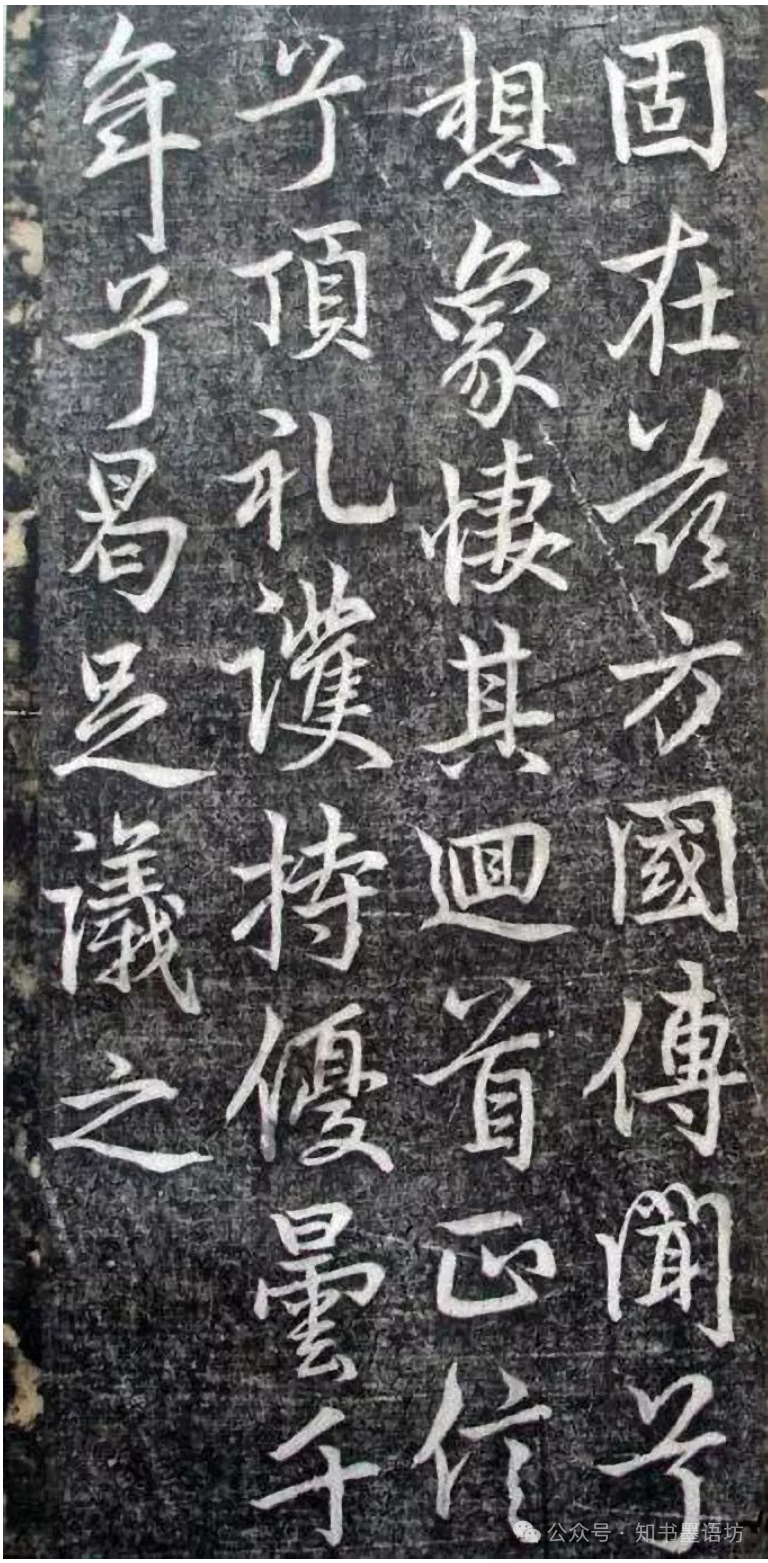 固在茲方國傳聞兮
想象悽其迴首正信
兮頂礼護持優曇千
年兮曷足議之
公众号 · 知书墨语坊